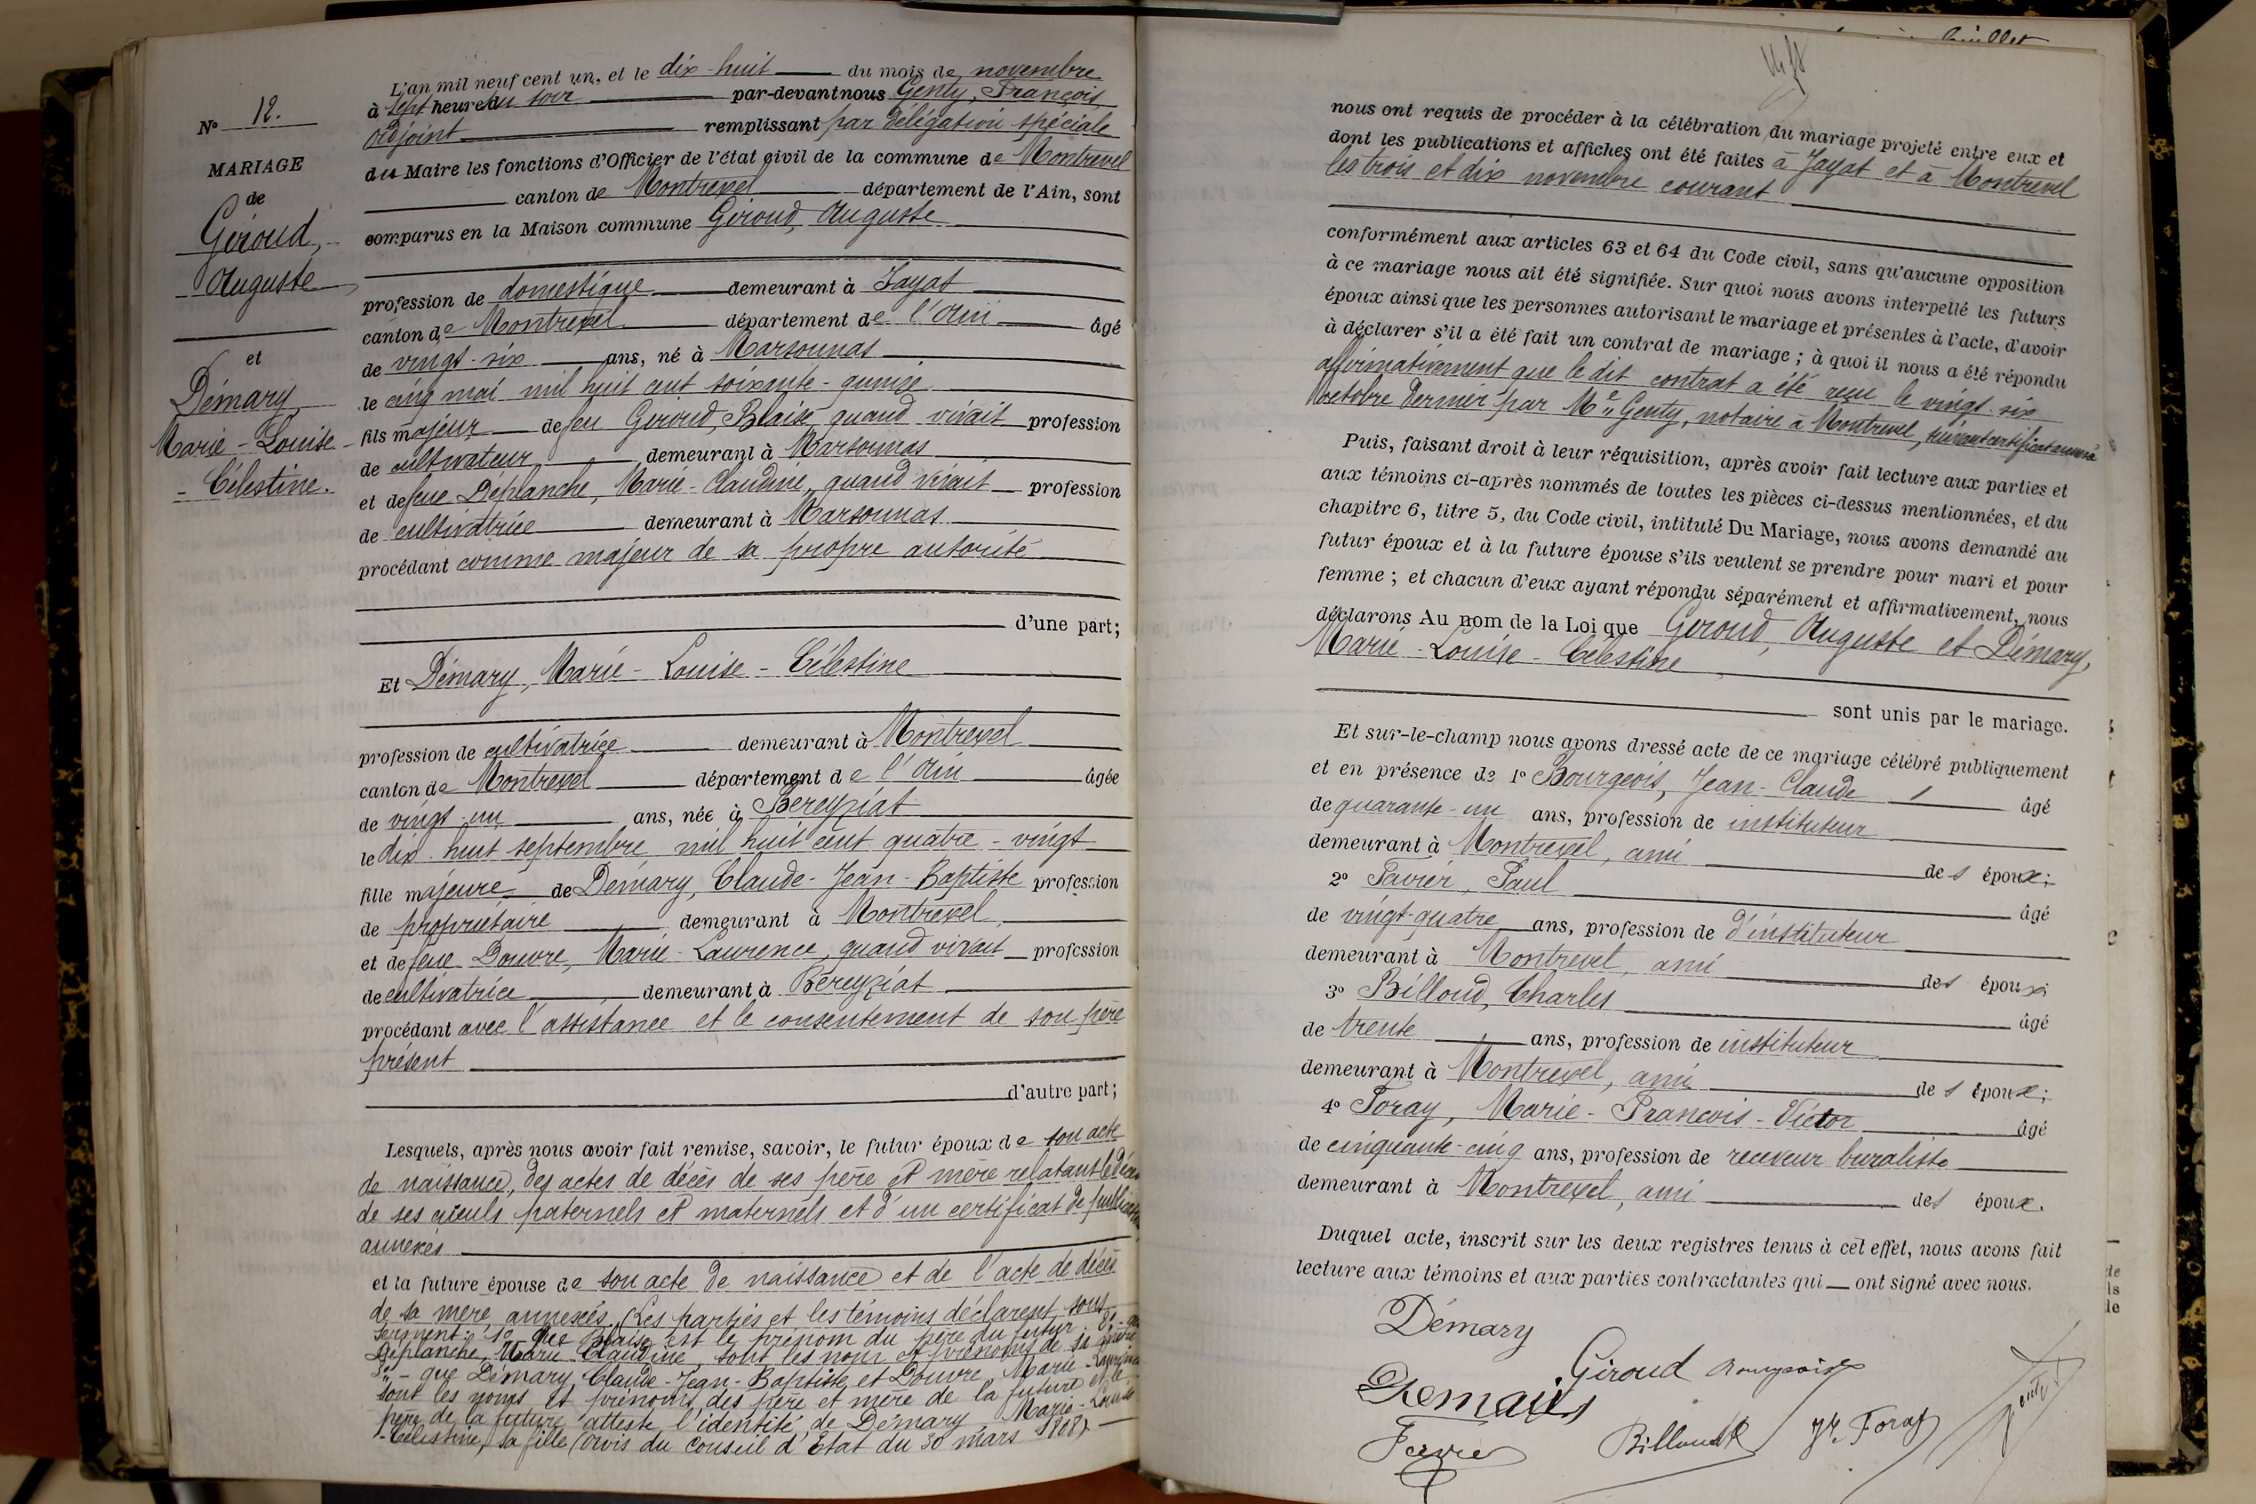 L'an mil neuf cent un, et le dix-huit du mois de novembre
à sept heures du soir par-devant nous Genty, François,
adjoint remplissant par délégation spéciale
du Maire les fonctions d'Officier de l'état civil de la commune de Montrevel
canton de Montrevel département de l'Ain, sont
comparus en la Maison commune Giroud, Auguste
profession de domestique demeurant à Jayat
canton de Montrevel département de l'Ain âgé
de vingt-six ans, né à Marsonnas
le cinq mai mil huit cent soixante-quinze
fils majeur de feu Giroud, Blaise, quand vivait profession
de cultivateur demeurant à Marsonnas
et de feue Déplanche, Marie-Claudine, quand vivait profession
de cultivatrice demeurant à Marsonnas
procédant comme majeur de sa propre autorité
d'une part;
Et Démary, Marie-Louise-Célestine
profession de cultivatrice demeurant à Montrevel
canton de Montrevel département de l'Ain âgée
de vingt-un ans, née à Béréyziat
le dix-huit septembre mil huit cent quatre-vingt
fille majeure de Démary, Claude-Jean-Baptiste profession
de propriétaire demeurant à Montrevel
et de feue Douvre, Marie-Laurence, quand vivait profession
de cultivatrice demeurant à Béréyziat
procédant avec l'assistance et le consentement de son père
présent
d'autre part;
Lesquels, après nous avoir fait remise, savoir, le futur époux de son acte
de naissance, des actes de décès de ses père et mère relatant le décès
de ses aïeuls paternels et maternels et d'un certificat de publication
annexés
et la future épouse de son acte de naissance et de l'acte de décès
de sa mère, annexés. (Les parties et les témoins déclarent sous
serment: 1° que Blaise est le prénom du père du futur. 2° que
Déplanche, Marie-Claudine, sont les nom et prénoms de sa mère
3° - que Démary, Claude-Jean-Baptiste et Douvre, Marie-Laurence
sont les noms et prénoms des père et mère de la future et le
père de la future atteste l'identité de Démary Marie-Louise
-Célestine, sa fille (avis du Conseil d'Etat du 30 mars 1808)
N° 12.
MARIAGE
de
Giroud,
Auguste
et
Démary
Marie-Louise
-Célestine.
nous ont requis de procéder à la célébration du mariage projeté entre eux et
dont les publications et affiches ont été faites à Jayat et à Montrevel
les trois et dix novembre courant
conformément aux articles 63 et 64 du Code civil, sans qu'aucune opposition
à ce mariage nous ait été signifiée. Sur quoi nous avons interpellé les futurs
époux ainsi que les personnes autorisant le mariage et présentes à l'acte, d'avoir
à déclarer s'il a été fait un contrat de mariage; à quoi il nous a été répondu
affirmativement que le dit contrat a été reçu le vingt-six
octobre dernier par Me Genty, notaire à Montrevel, suivant certificat annexé
Puis, faisant droit à leur réquisition, après avoir fait lecture aux parties et
aux témoins ci-après nommés de toutes les pièces ci-dessus mentionnées, et du
chapitre 6, titre 5, du Code civil, intitulé Du Mariage, nous avons demandé au
futur époux et à la future épouse s'ils veulent se prendre pour mari et pour
femme; et chacun d'eux ayant répondu séparément et affirmativement, nous
déclarons Au nom de la Loi que Giroud, Auguste et Démary,
Marie-Louise-Célestine
sont unis par le mariage.
Et sur-le-champ nous avons dressé acte de ce mariage célébré publiquement
et en présence de 1° Bourgeois, Jean-Claude âgé
de quarante-un ans, profession de instituteur
demeurant à Montrevel, ami des époux;
2° Favier, Paul âgé
de vingt-quatre ans, profession de d'instituteur
demeurant à Montrevel, ami des époux;
3° Billoud, Charles âgé
de trente ans, profession de instituteur
demeurant à Montrevel, ami des époux;
4° Foray, Marie-François-Victor âgé
de cinquante-cinq ans, profession de receveur buraliste
demeurant à Montrevel, ami des époux.
Duquel acte, inscrit sur les deux registres tenus à cet effet, nous avons fait
lecture aux témoins et aux parties contractantes qui ont signé avec nous.
Démary
Giroud Bourgeois
Demary
Billoud Foray